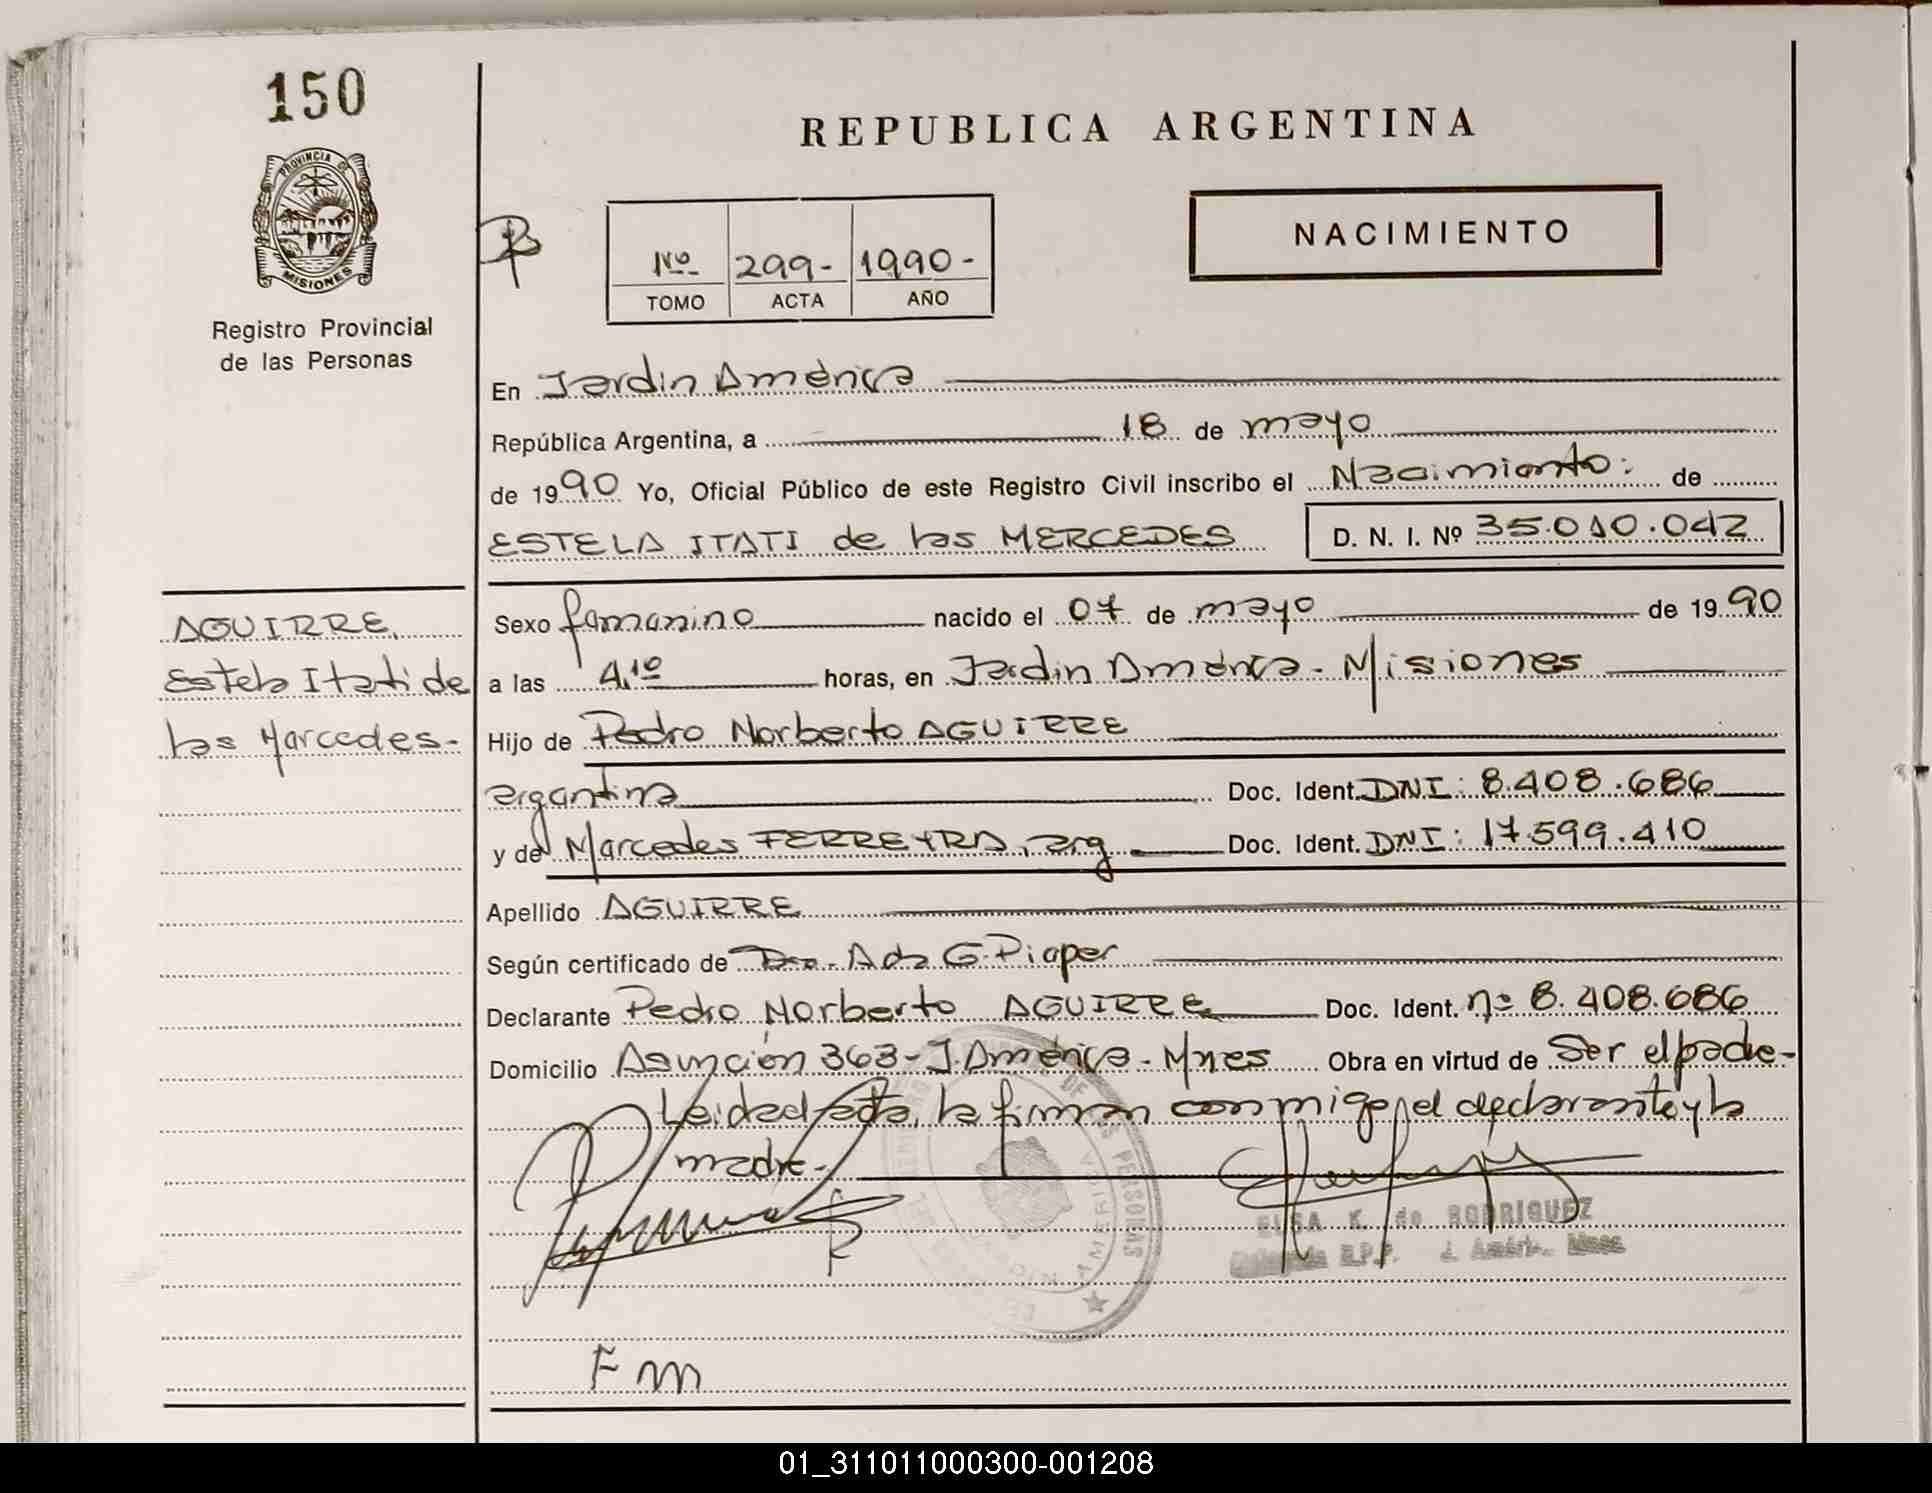 150
REPUBLICA ARGENTINA
PROVINCIA DE
MISIONES
Registro Provincial
de las Personas
Nº 299- 1990-
TOMO ACTA AÑO
NACIMIENTO
En Jardin América
República Argentina, a 18 de mayo
de 1990 Yo, Oficial Público de este Registro Civil inscribo el Nacimiento: de
ESTELA ITATI de las MERCEDES D. N. I. Nº 35.010.042
AGUIRRE,
Estela Itati de
las Mercedes-
Sexo femenino nacido el 07 de mayo de 1990
a las 4,10 horas, en Jardin América - Misiones
Hijo de Pedro Norberto AGUIRRE
argentina Doc. Ident. DNI: 8.408.686
y de Mercedes FERREYRA, arg Doc. Ident. DNI: 17.599.410
Apellido AGUIRRE
Según certificado de Dra. Ada G. Pieper
Declarante Pedro Norberto AGUIRRE Doc. Ident. nº 8.408.686
Domicilio Asunción 363 - J. América - Mnes Obra en virtud de Ser el padre-
Leída el acta, la firman conmigo, el declarante y la
madre.-
ELSA K. de RODRIGUEZ
Delegada R.P.P. J. América Mnes.
F m
01_311011000300-001208